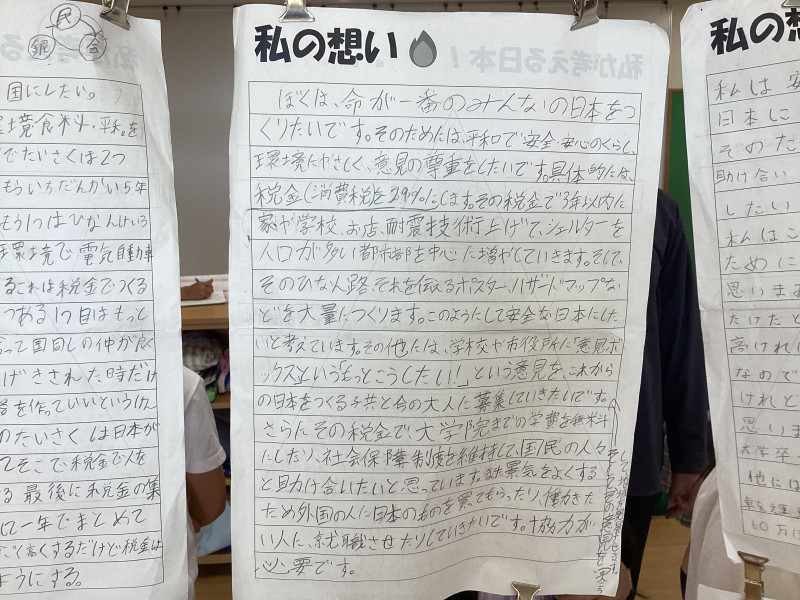 民
銀 会
国にしたい。
環境・食料・平和を
でたいさくは2つ
もういちだんかい5年
もう1つはひなんけいろ
環境で電気自動車
るこれは税金でつくる
つある1つ目はもっと
って国同しの仲が良く
げきされた時だけ
を作っていいというけん
のたいさくは日本が
てそこで税金で人を
る最後に税金の集
に一年でまとめて
ごく高くするだけど税金は
ようにする。
私の想い
ぼくは、命が一番のみんなの日本をつ
くりたいです。そのためには、平和で安全・安心のくらし、
環境にやさしく、意見の尊重をしたいです。具体的には、
税金(消費税)を29%にします。その税金で3年以内に
家や学校、お店、耐震技術上げて、シェルターを
人口が多い都市部を中心に増やしていきます。そして、
そのひなん路、それを伝えるポスター、ハザードマップな
どを大量につくります。このようにして安全な日本にした
いと考えています。その他には、学校や市役所に「意見ボ
ックス」という「もっとこうしたい!」という意見を、これから
の日本をつくる子供と今の大人に募集していきたいです。
さらにその税金で、大学院までの学費を無料
にしたり、社会保障制度を維持して、国民の人々
と助け合いたいと思っています。また景気をよくする
ため外国の人に日本のものを買てもらったり働きた
い人に、就職させたりしていきたいです。協力が
必要です。
私の想
私は安
日本に
そのた
助け合い
したい
私はこ
ために
思いま
たけたと
高ければ
なので
けれど
思いま
大学卒
他には
車を運
60万